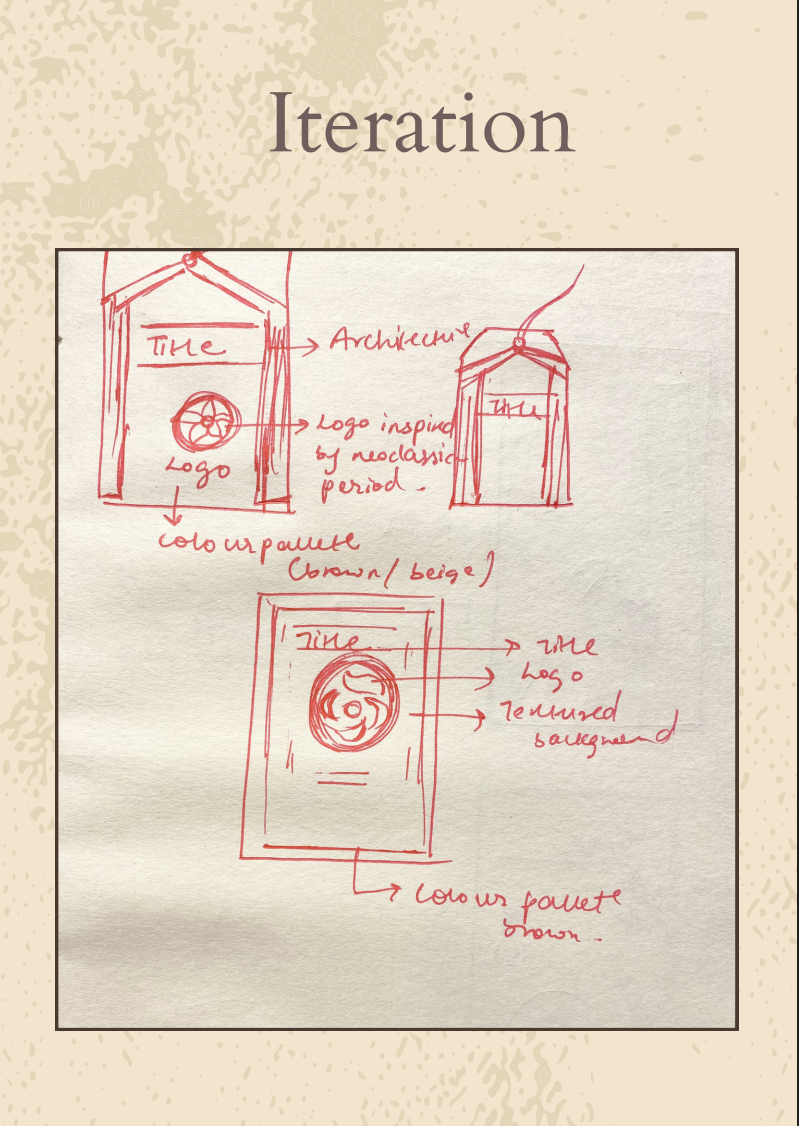 Iteration
Title
Architecture
Title
Logo inspired
by neoclassic
period.
Logo
colour pallete
(brown/ beige)
Title
Title
Logo
Textured
background
Colour pallete
brown.